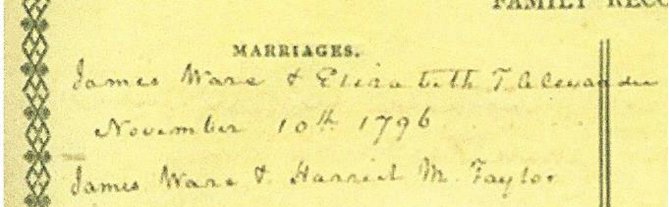 FAMILY RECO
MARRIAGES.
James Ware & Elizabeth T Alexander
November 10th 1796
James Ware & Harriet M. Taylor